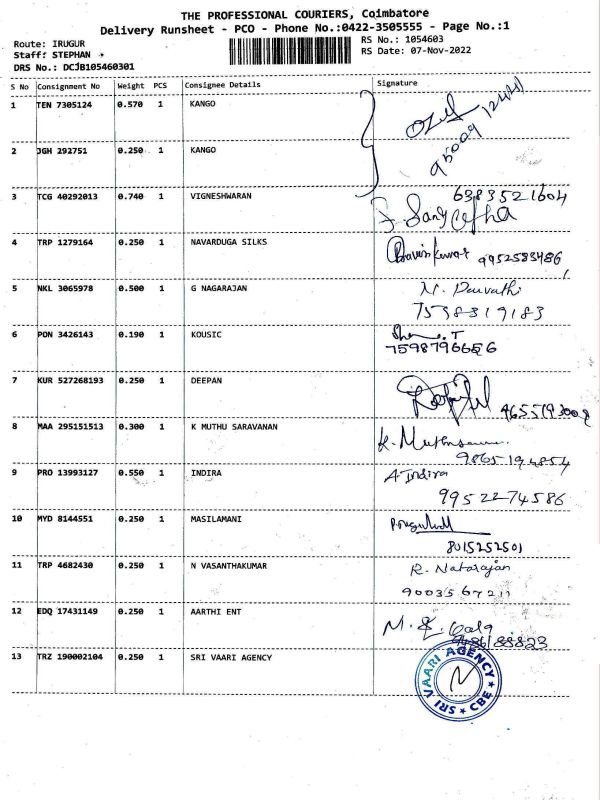 THE PROFESSIONAL COURIERS, Coimbatore
Delivery Runsheet - PCO - Phone No.:0422-3505555 - Page No.:1
Route: IRUGUR
Staff: STEPHAN
DRS No.: DCJB105460301
RS No.: 1054603
RS Date: 07-Nov-2022
S No Consignment No Weight PCS Consignee Details Signature
1 TEN 7305124 0.570 1 KANGO
2 JGH 292751 0.250 1 KANGO
3 TCG 40292013 0.740 1 VIGNESHWARAN 6383521604
Sangeetha
4 TRP 1279164 0.250 1 NAVARDUGA SILKS 9952583486
5 NKL 3065978 0.500 1 G NAGARAJAN N. Parvathi
7538319183
6 PON 3426143 0.190 1 KOUSIC
7598796656
7 KUR 527268193 0.250 1 DEEPAN
8 MAA 295151513 0.300 1 K MUTHU SARAVANAN
9865194854
9 PRO 13993127 0.550 1 INDIRA A Indira
9952274586
10 MYD 8144551 0.250 1 MASILAMANI
8015252501
11 TRP 4682430 0.250 1 N VASANTHAKUMAR R. Natarajan
9003567211
12 EDQ 17431149 0.250 1 AARTHI ENT
13 TRZ 190002104 0.250 1 SRI VAARI AGENCY
SRI VAARI AGENCY
CBE